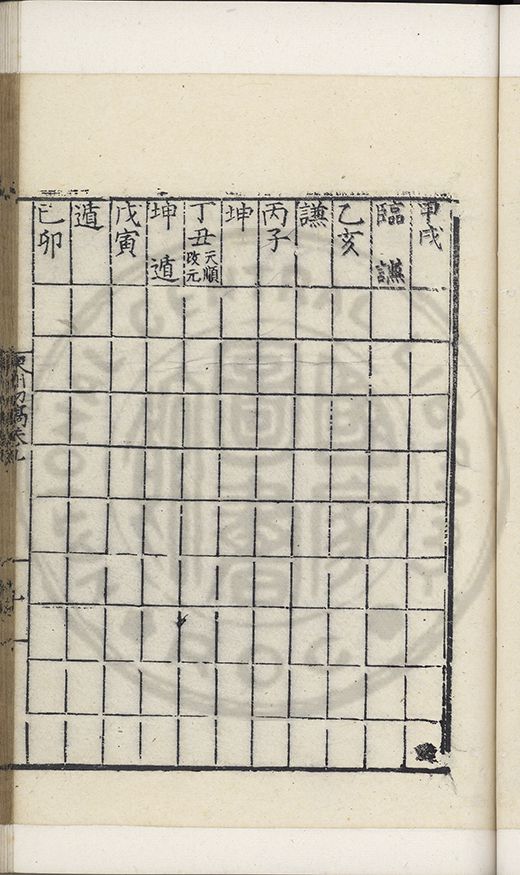 甲戌
臨 謙
乙亥
謙
丙子
坤
丁丑 天順改元
坤 遁
戊寅
遁
己卯